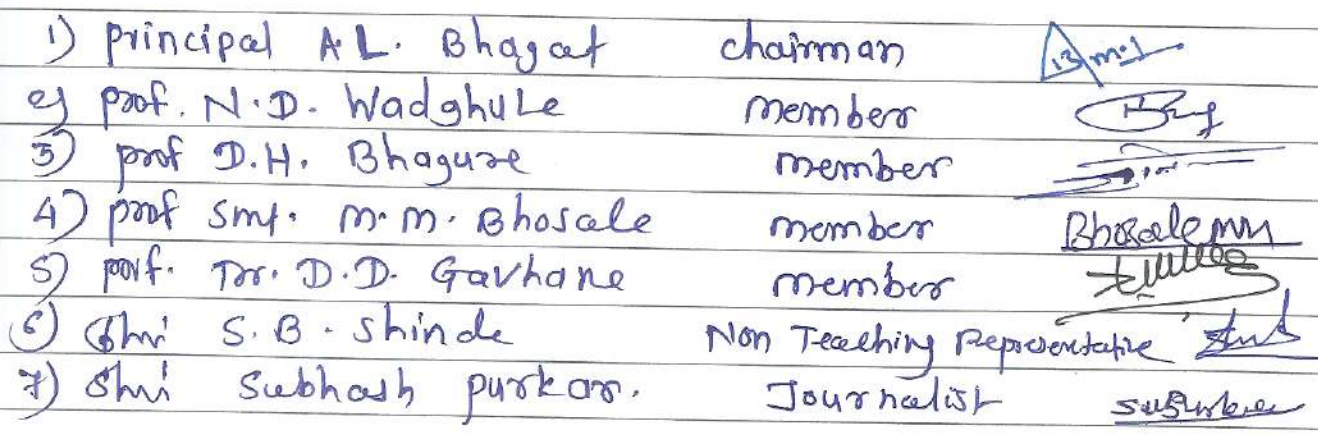 1) principal A.L. Bhagat chairman
2) prof. N.D. Wadghule member
3) prof D.H. Bhagure member
4) prof Smt. M.M. Bhosale member Bhosale MM
5) prof. Dr. D.D. Gavhane member
6) Shri S.B. Shinde Non Teaching Representative
7) Shri Subhash purkar. Journalist